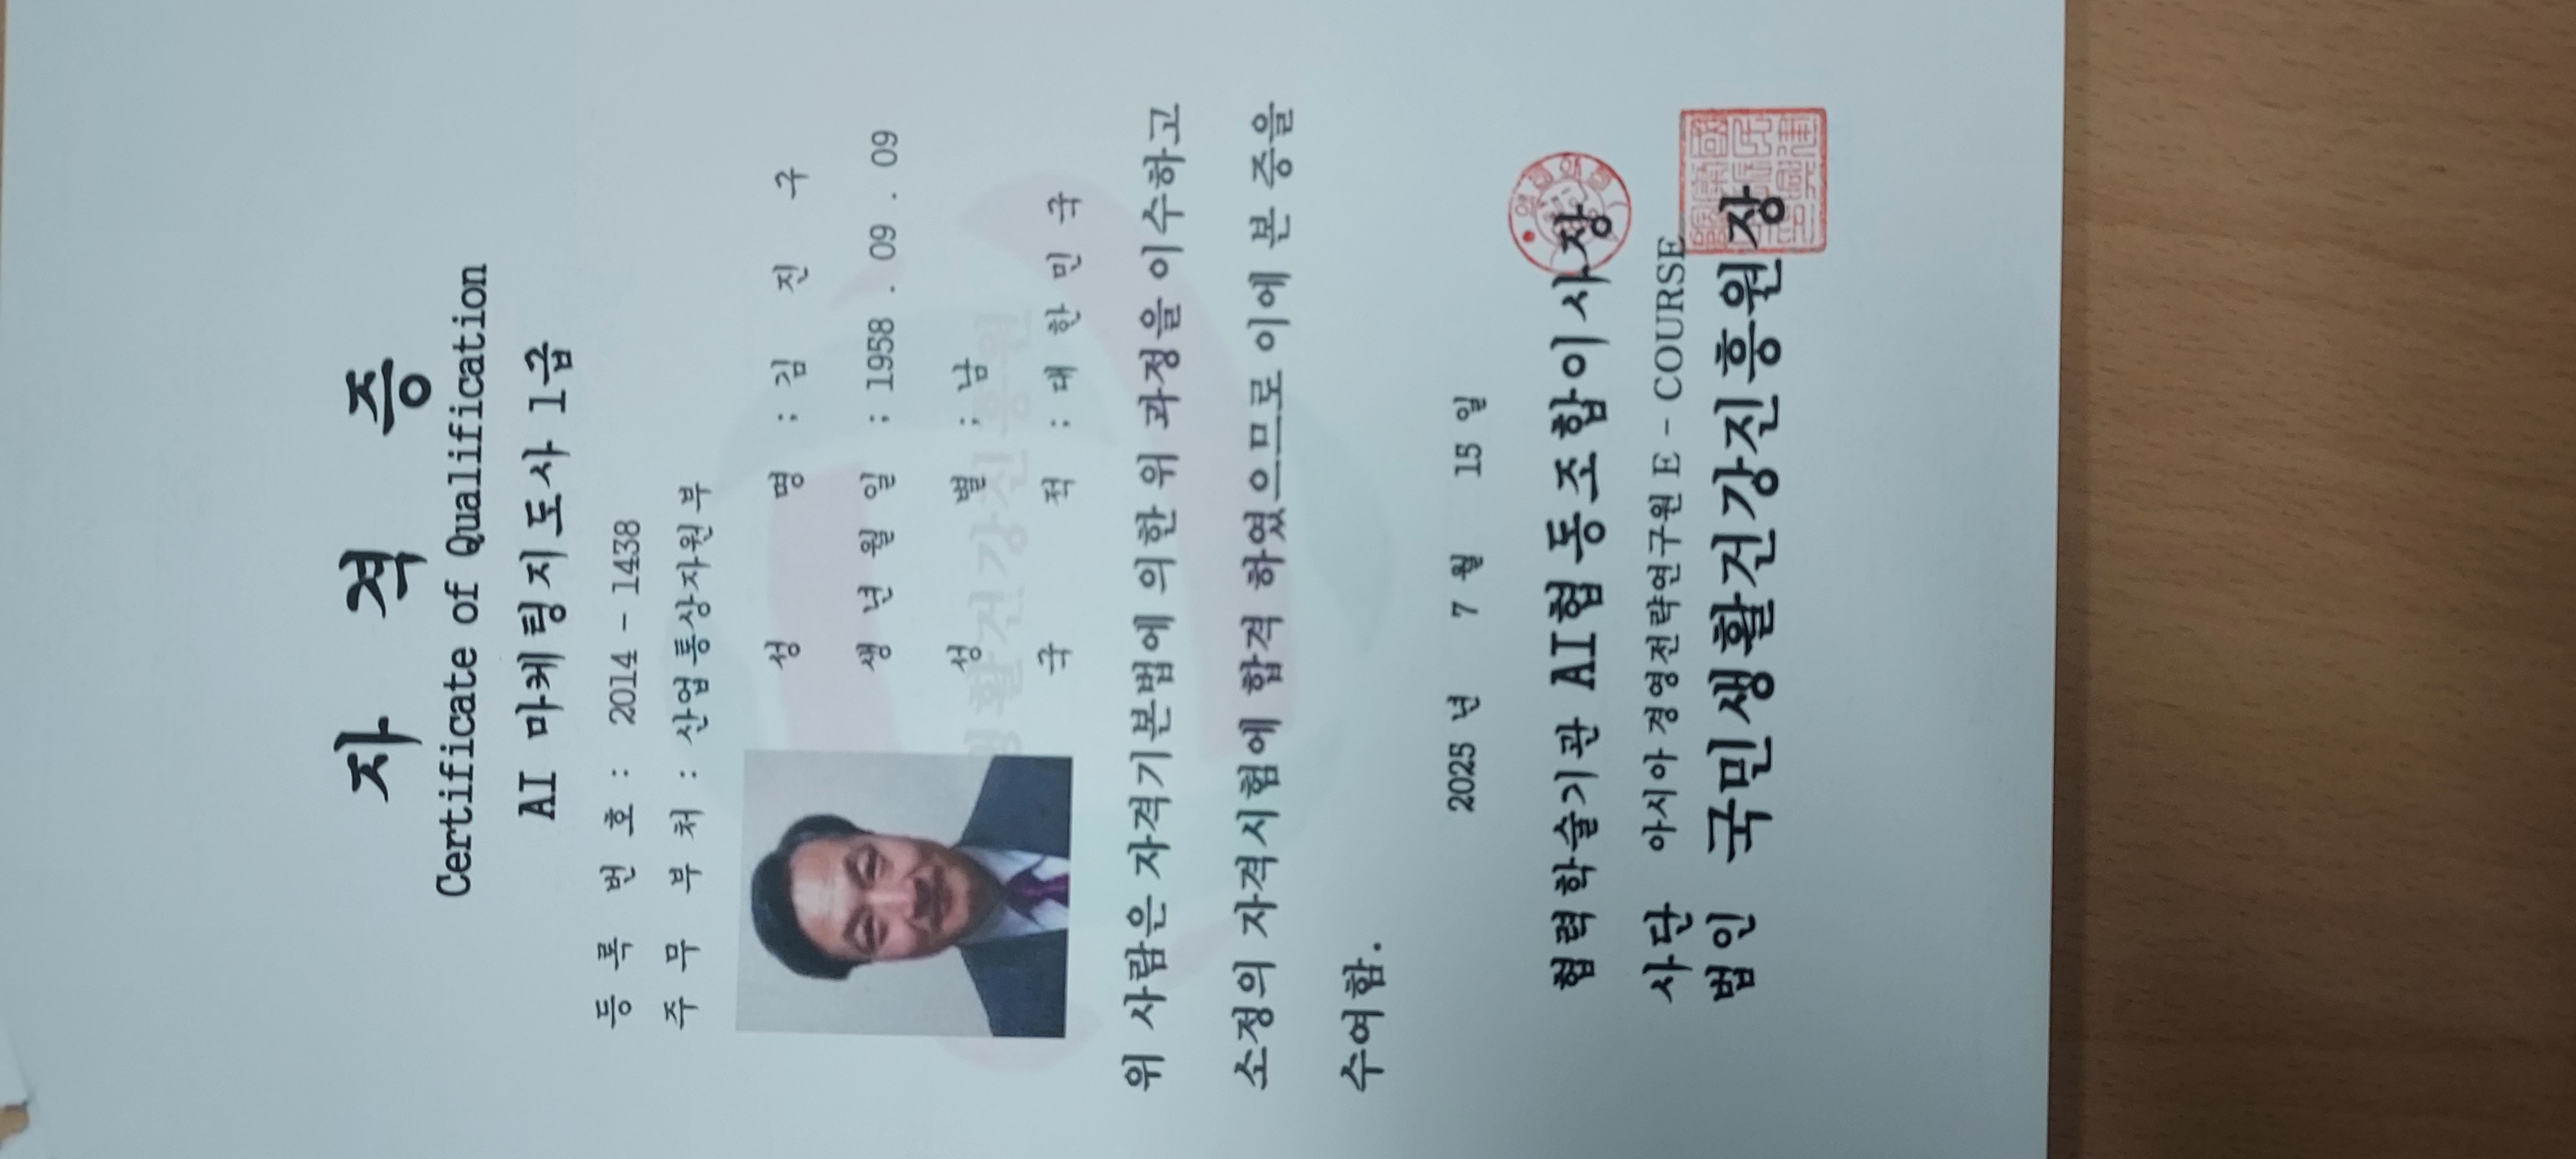 자 격 증
Certificate of Qualification
AI 마케팅지도사 1급
등 록 번 호 : 2014 - 1438
주 무 부 처 : 산업통상자원부
성 명 : 김 진 구
생 년 월 일 : 1958 . 09 . 09
성 별 : 남
국 적 : 대 한 민 국
위 사람은 자격기본법에 의한 위 과정을 이수하고
소정의 자격시험에 합격 하였으므로 이에 본 증을
수여함.
2025 년 7 월 15 일
협력학술기관 AI협동조합이사장
아시아 경영전략연구원 E - COURSE
사단법인 국민생활건강진흥원장